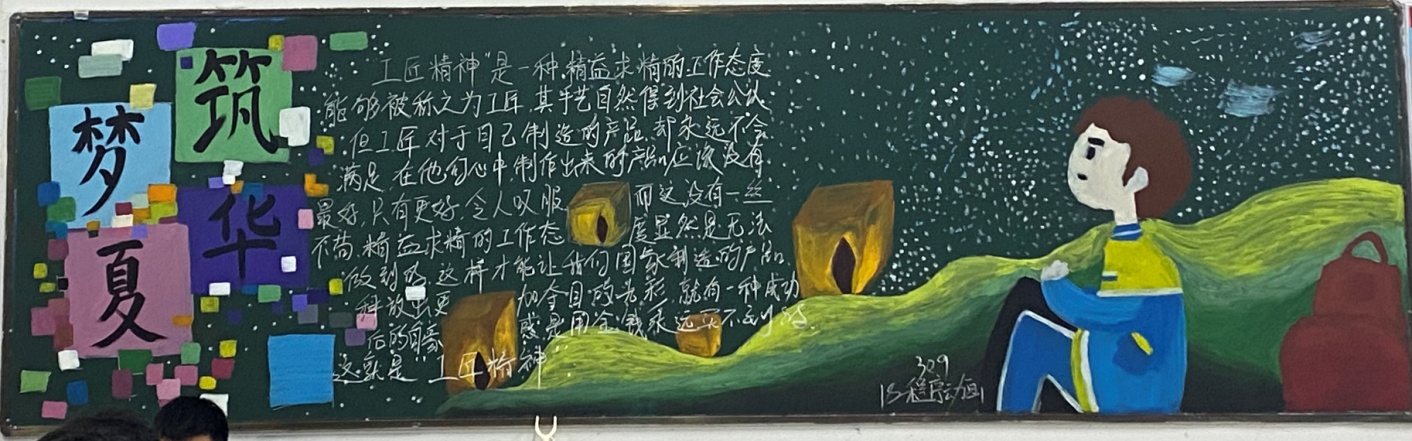 筑
梦
华
夏
工匠精神"是一种精益求精的工作态度
能够被称之为工匠.其手艺自然得到社会公认
但工匠对于自己制造的产品.却永远不会
满足.在他的心中.制作出来的产品应该没有
最好.只有更好.令人叹服 而这没有一丝
不苟.精益求精的工作态 度显然是无法
做到的.这样才能让我们国家制造的产品
释放出更 加夺目的光彩.就有一种成功
后的自豪 感是用金钱永远买不到的.
这就是 工匠精神
309
15程序动画